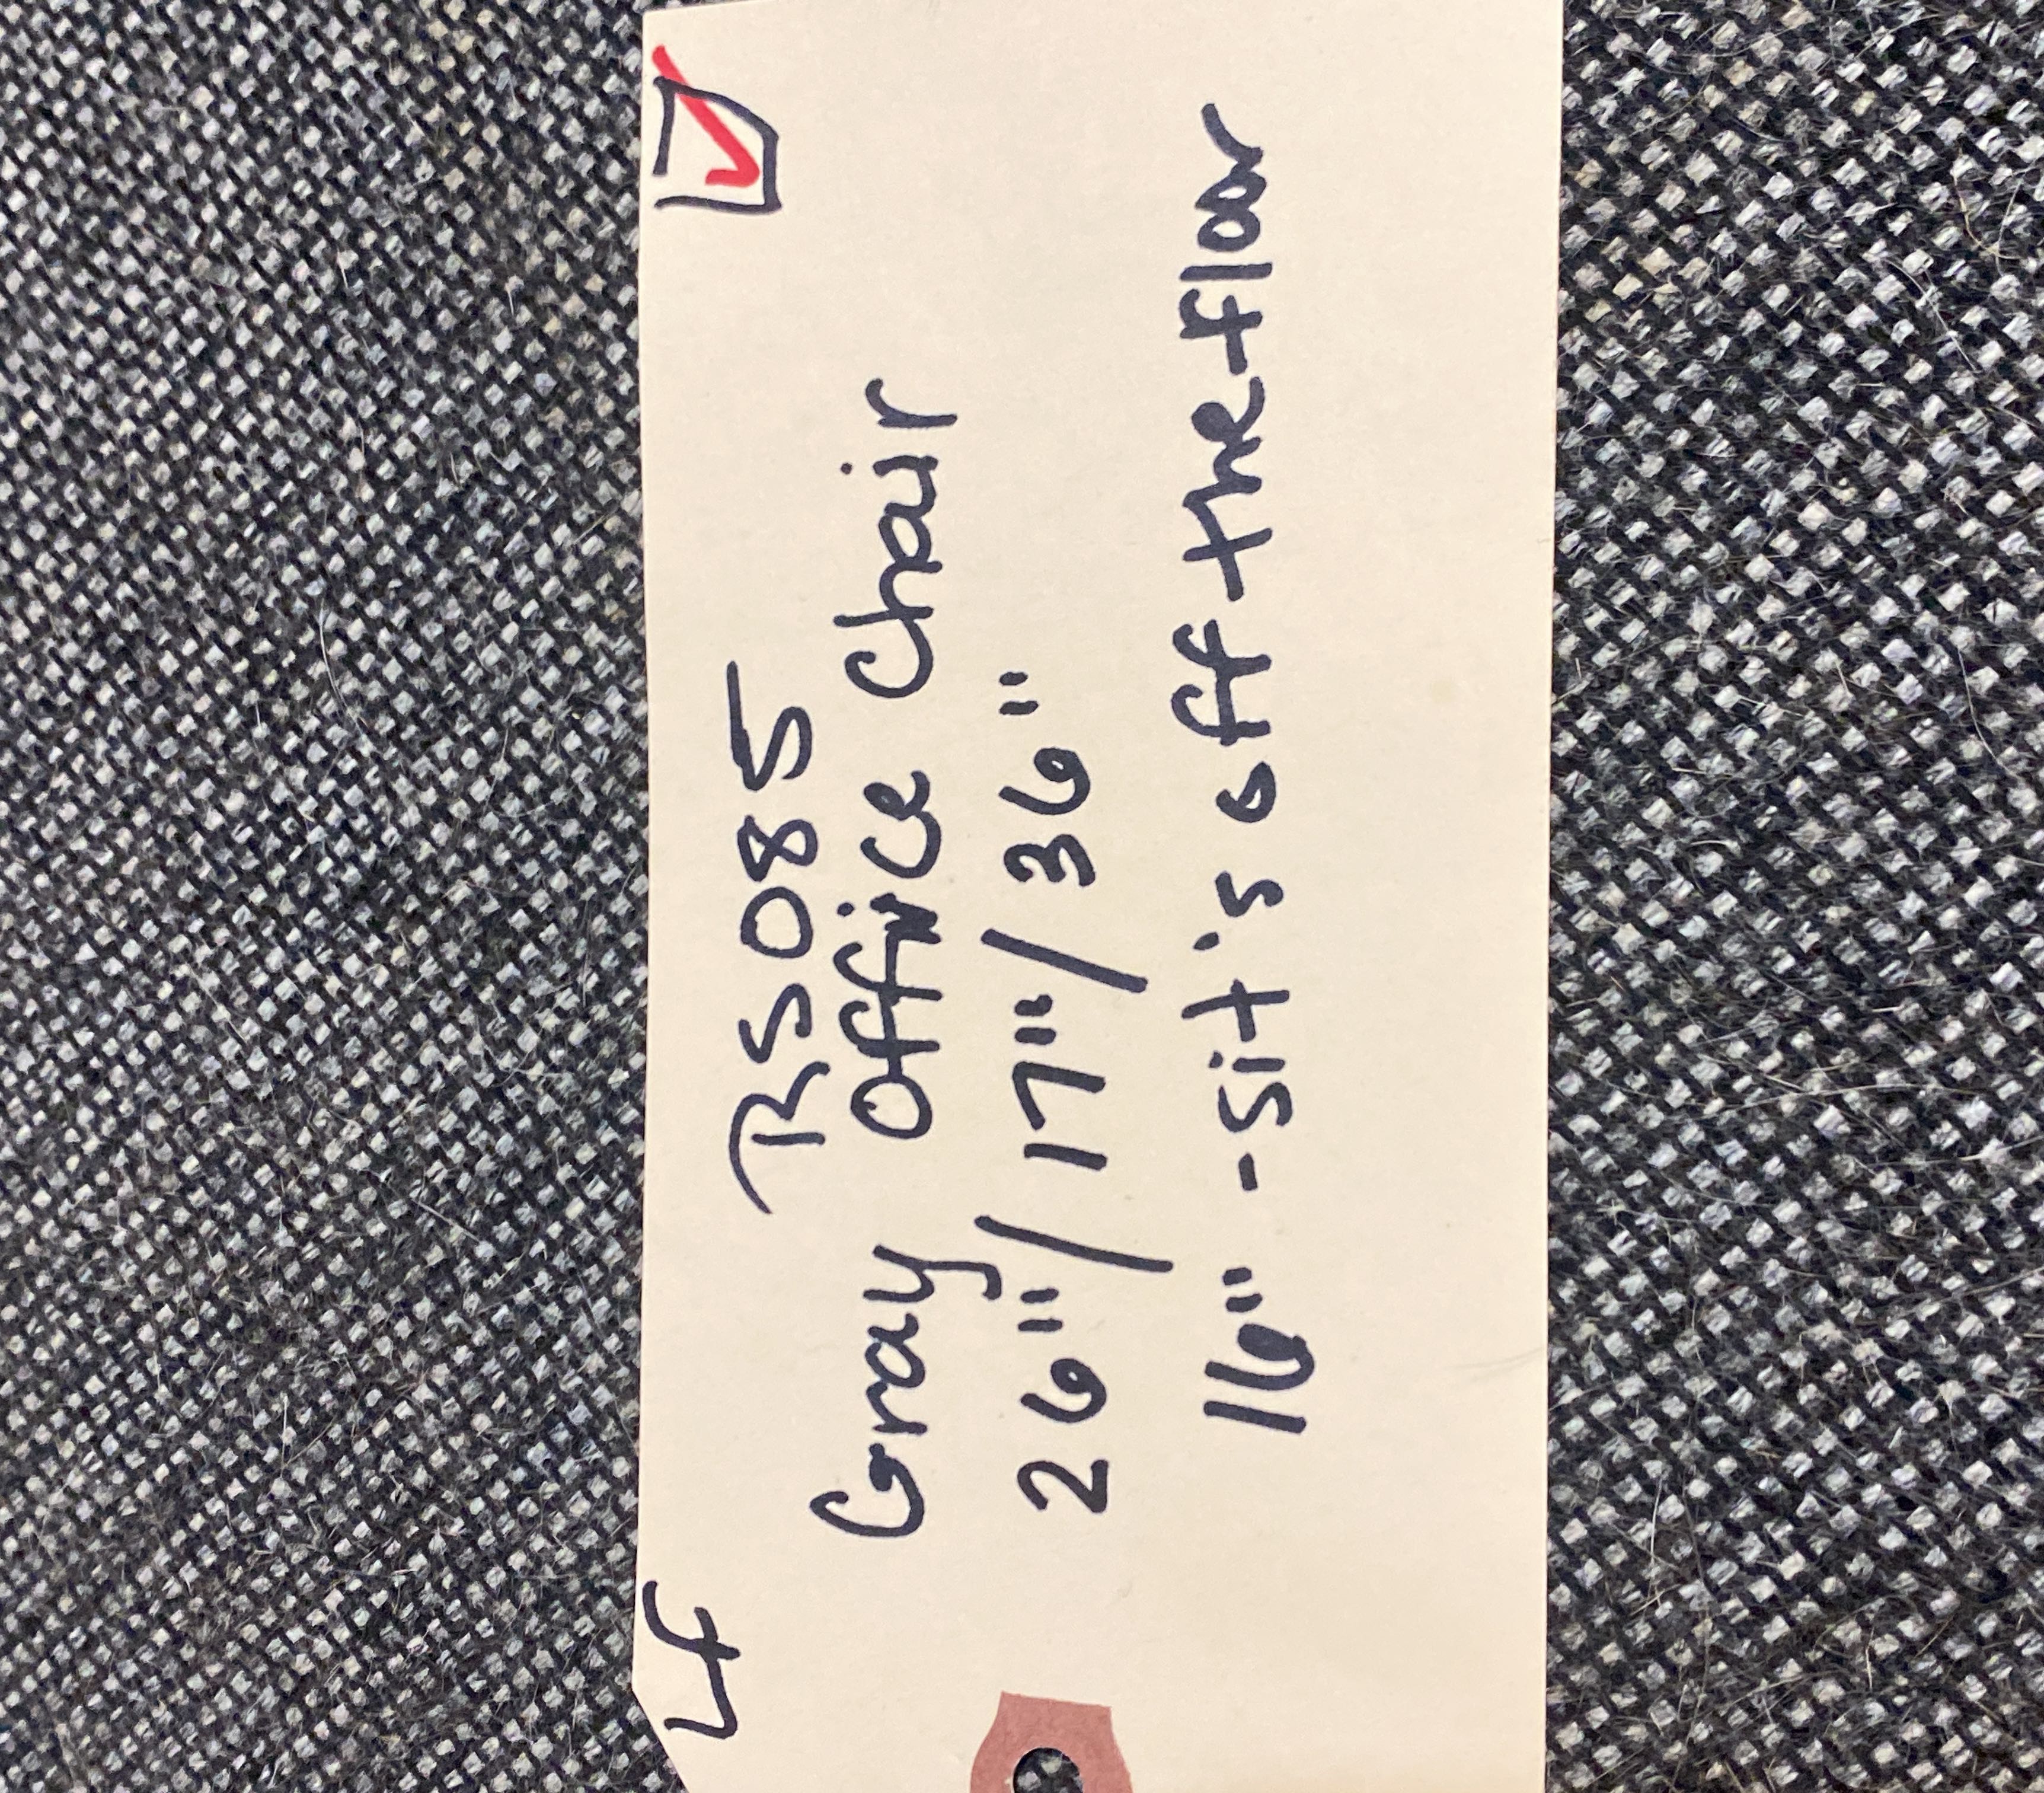 LF
RS085
Gray Office Chair
26"/17"/36"
16" - Sit's off the floor